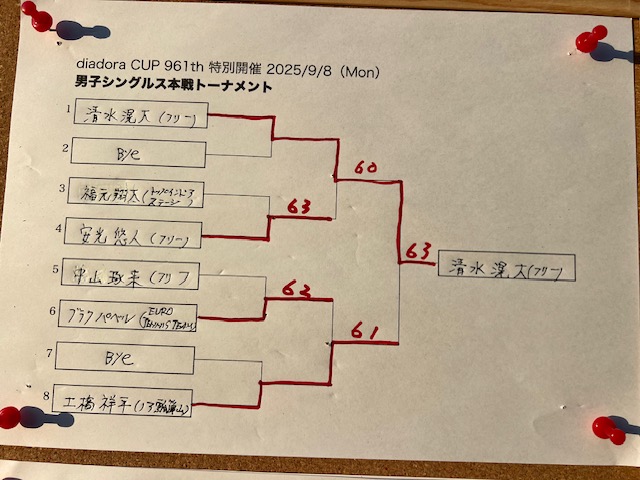 diadora CUP 961th 特別開催 2025/9/8（Mon）
男子シングルス本戦トーナメント
1 清水滉大(フリー)
60
2 Bye
3 福元翔太(トップインドアステージ)
63
4 安光悠人(フリー)
63
清水滉大(フリー)
5 中山琢来(フリー)
62
6 ブラクパベル(EURO TENNIS TEAM)
61
7 Bye
8 土橋祥平